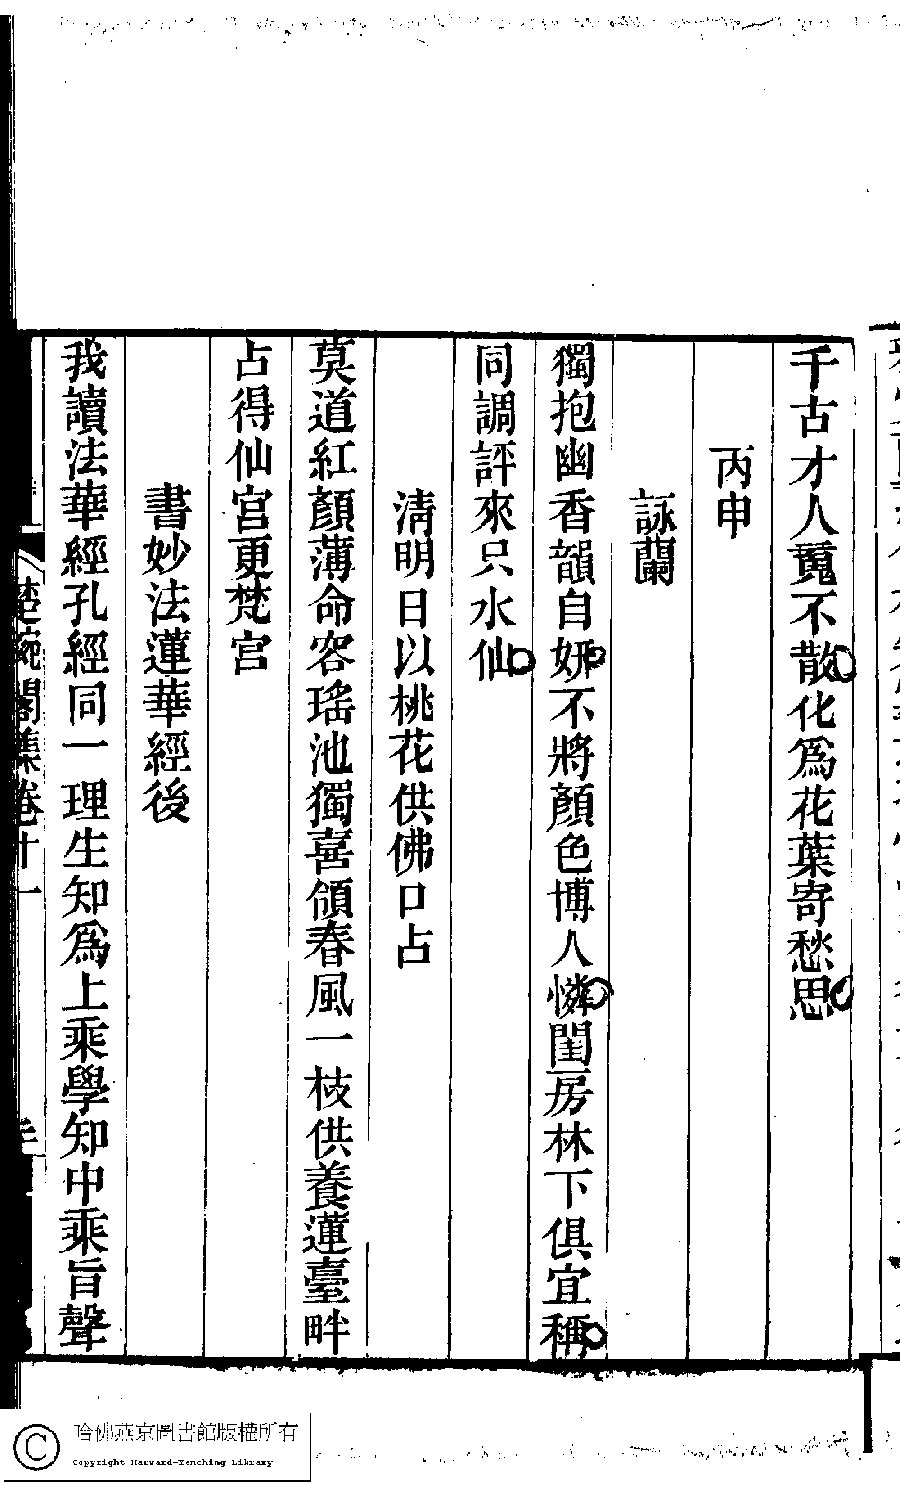 千古才人䰟不散化爲花葉寄愁思
丙申
詠蘭
獨抱幽香韻自妍不將顏色博人憐閨房林下俱宜稱
同調評來只水仙
清明日以桃花供佛口占
莫道紅顏薄命客瑤池獨喜領春風一枝供養蓮臺畔
占得仙宮更梵宮
書妙法蓮華經後
我讀法華經孔經同一理生知爲上乘學知中乘旨聲
楚畹閣集卷十一
哈佛燕京圖書館版權所有
Copyright Harvard-Yenching Library